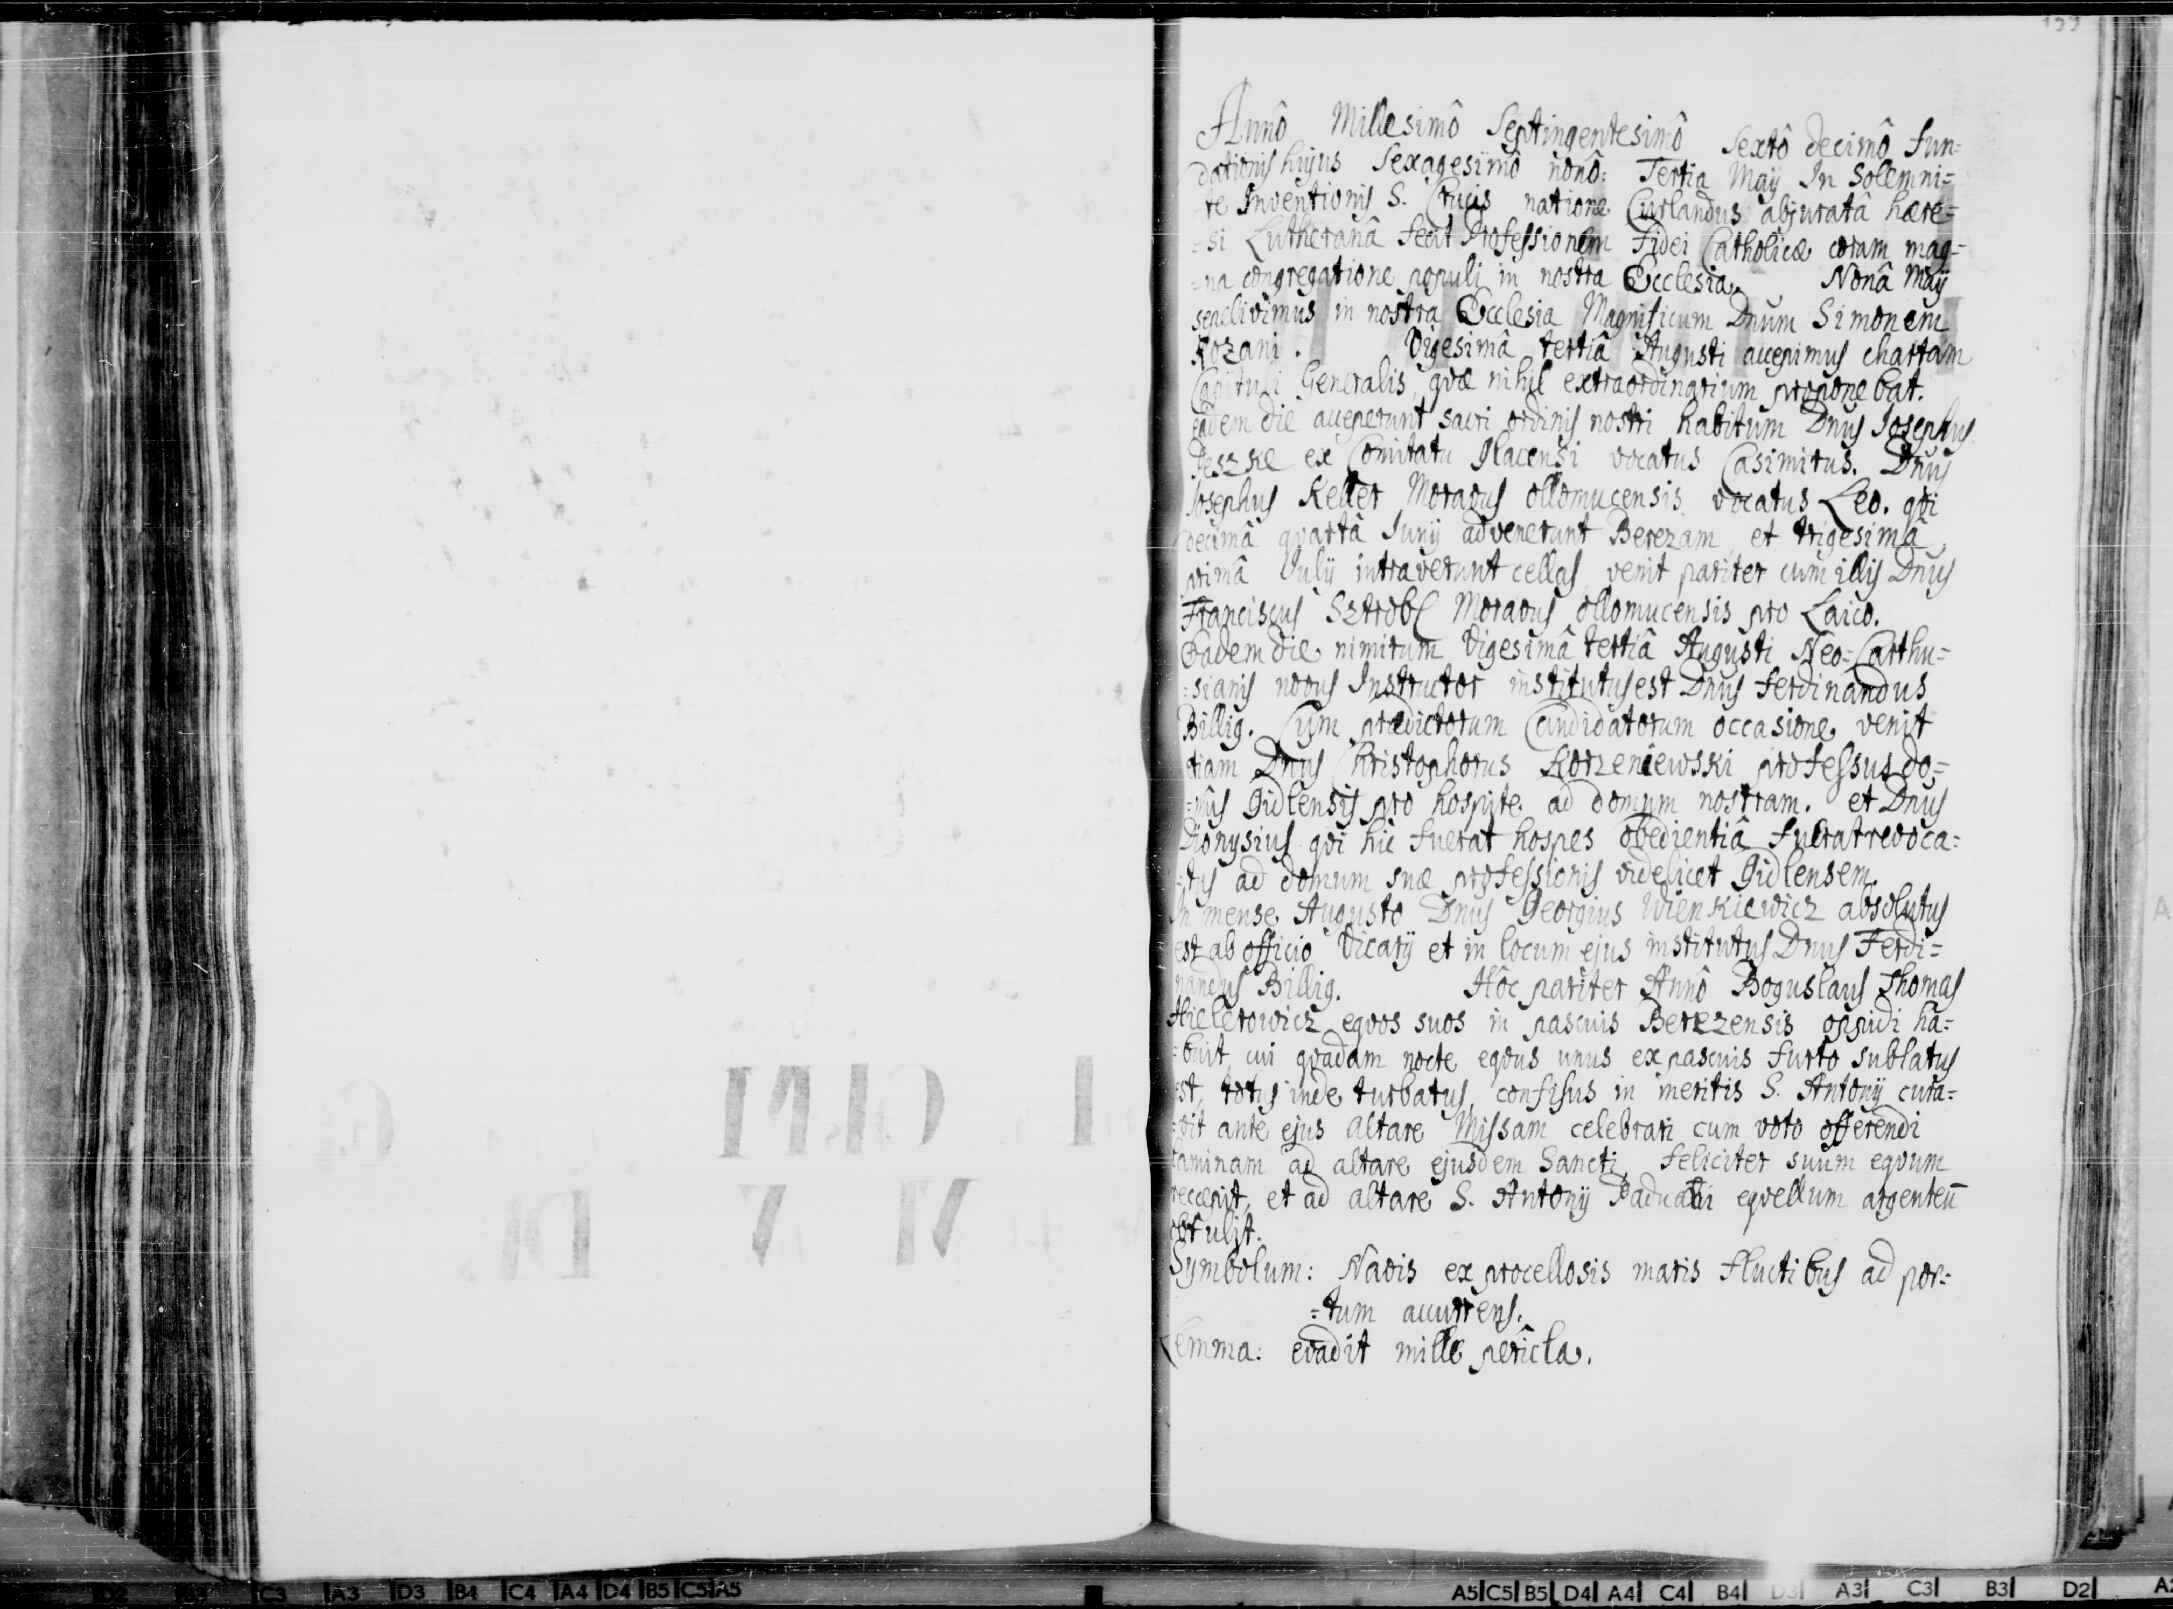 Annô Millesimô Septingentesimô Sextô decimô fun=
dationis hujus Sexagesimô nonô: Tertia Maij In Solemni=
te Inventionis S. Crucis natione Curlandus abjuratâ hære=
=si Lutheranâ fecit Professionem fidei Catholicæ coram mag=
=na congregatione populi in nostra Ecclesia. Nonâ Maij
sepelivimus in nostra Ecclesia Magnificum Dnum Simonem
Kozani. Vigesimâ tertiâ Augusti accepimus chartam
Capituli Generalis, qvæ nihil extraordinarium proponebat.
eadem die acceperunt sacri ordinis nostri habitum Dnus Josephus
Teszke ex Comitatu Glacensi vocatus Casimirus. Dnus
Josephus Keller Moravus ollomucensis vocatus Leo. qvi
decimâ qvartâ Junij advenerunt Berezam et trigesimâ
primâ Julij intraverunt cellas venit pariter cum illis Dnus
Franciscus Sztrobl Moravus ollomucensis pro Laico.
Eadem die nimirum Vigesimâ tertiâ Augusti Neo=Carthu=
=sianis novus Instructor institutus est Dnus Ferdinandus
Billig. Cum prædictorum Candidatorum occasione venit
etiam Dnus Christophorus Korzeniewski professus do=
=mûs Gidlensis pro hospite ad domum nostram. et Dnus
Dionysius qvi hic fuerat hospes obedientiâ fuerat revoca=
=tus ad domum suæ professionis videlicet Gidlensem.
In mense Augusto Dnus Georgius Wienkiewicz absolutus
est ab officio Vicarij et in locum ejus institutus Dnus Ferdi=
nandus Billig. Hôc pariter Annô Boguslaus Thomas
Hielerowicz eqvos suos in pascuis Berezensis oppidi ha=
=buit, cui qvadam nocte eqvus unus ex pascuis furto sublatus
est, totus inde turbatus, confisus in meritis S. Antonij cura=
=vit ante ejus altare Missam celebrari cum voto offerendi
laminam ad altare ejusdem Sancti, feliciter suum eqvum
reccepit, et ad altare S. Antonij Paduani eqvellum argenteū
obtulit.
Symbolum: Navis ex procellosis maris fluctibus ad por=
=tum accurrens.
Lemma: evadit mille pericla.